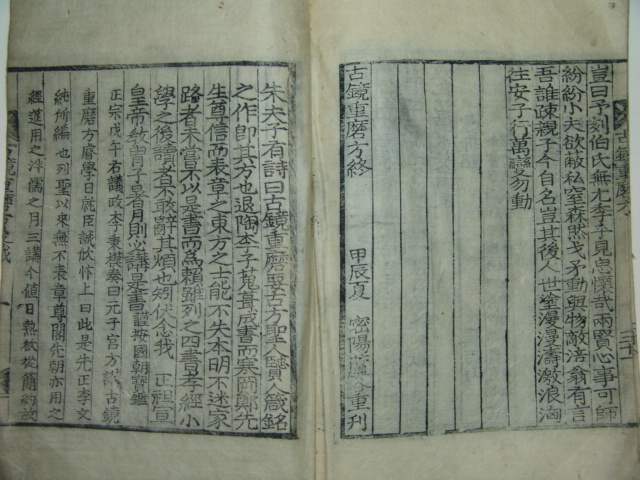 豈曰予刻伯氏無尤李平見忠懷哉兩賢心事可師
紛紛小夫欲敵私窒森然戈矛動與物敵涪翁有言
吾誰疎親子今自名豈其後人世塗漫漫濤激浪洶
往安子行萬變勿動
古鏡重磨方終
甲辰夏 密陽 重刊
朱夫子有詩曰古鏡重磨要古方聖人賢人箴銘
之作卽其方也退陶李子蒐葺成書而寒岡鄭先
生尊信而表章之東方之士能不失本明不迷家
路者未嘗不以是書而爲賴雖列之四書孝經小
學之後讀者不敢辭其煩也矧伏念我 正祖宣
皇帝敎胄子暑月則必講是書謹按國朝寶鑑
正宗戊午右議政李秉模奏曰元子宮方講古鏡
重磨方睿學日就臣誠欣忭上曰此是先正李文
純所編也列聖以來無不表章尊閣先朝亦用之
經進用之泮儒之月三講今値日熱欲從簡約故